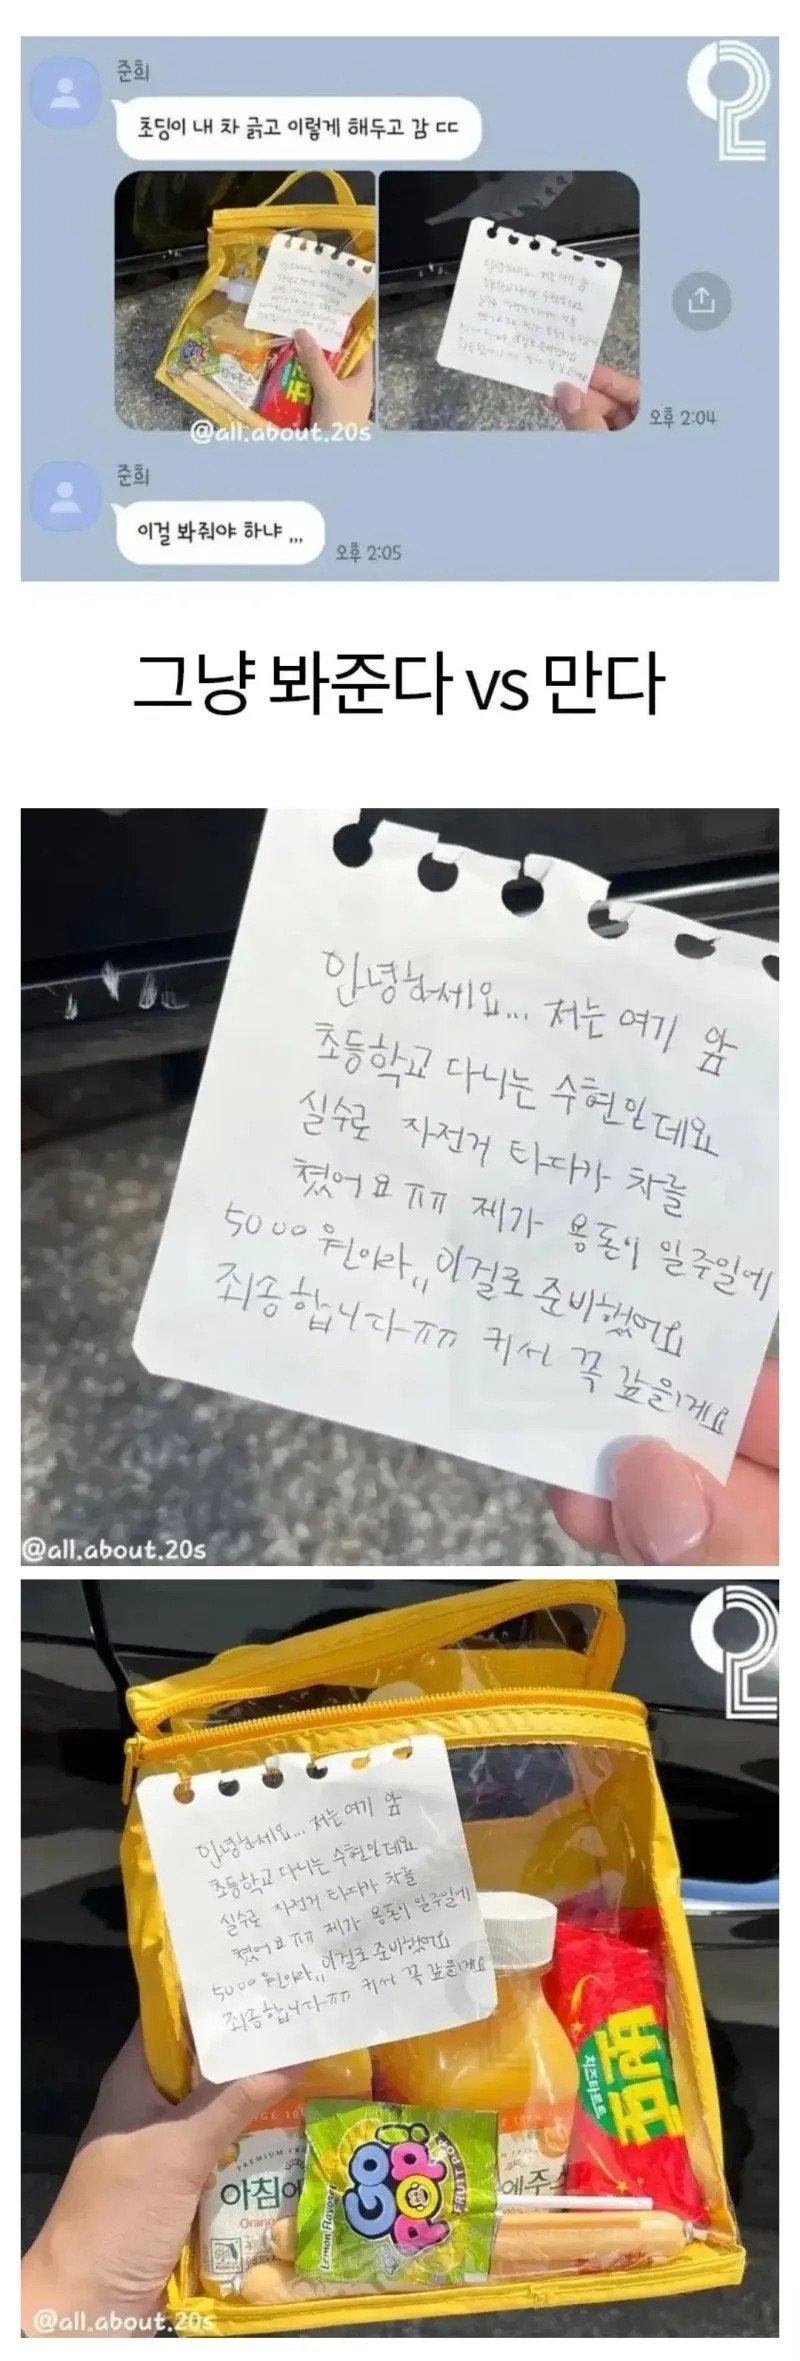 준희
초딩이 내 차 긁고 이렇게 해두고 감 ㄷㄷ
@all.about.20s
오후 2:04
준희
이걸 봐줘야 하냐 ,,,
오후 2:05
그냥 봐준다 vs 만다
안녕하세요... 저는 여기 앞
초등학교 다니는 수현인데요
실수로 자전거 타다가 차를
쳤어요 ㅠㅠ 제가 용돈이 일주일에
5000원이라,, 이걸로 준비했어요
죄송합니다ㅠㅠ 커서 꼭 갚을게요
@all.about.20s
안녕하세요... 저는 여기 앞
초등학교 다니는 수현인데요
실수로 자전거 타다가 차를
쳤어요 ㅠㅠ 제가 용돈이 일주일에
5000원이라,, 이걸로 준비했어요
죄송합니다ㅠㅠ 커서 꼭 갚을게요
치즈타르트
PREMIUM
아침에
에주스
Orang
GO!
POP
FRUIT POP
Lemon Flavor
@all.about.20s